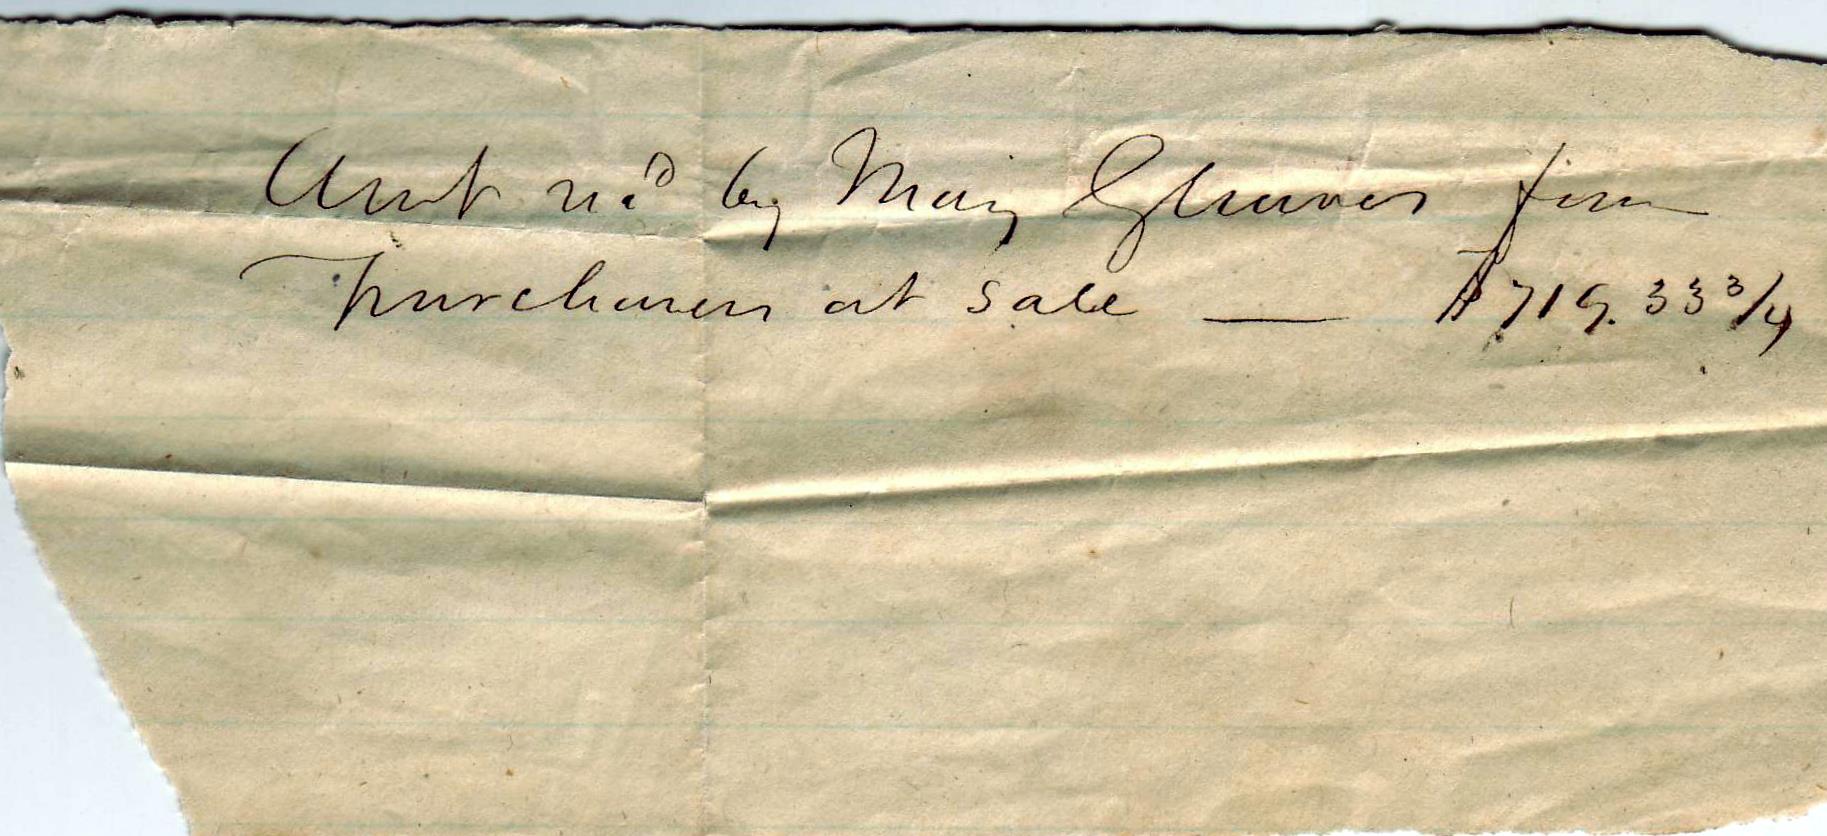 Amt rec'd by Mary Gleaves from
purchasers at sale — $719.33 3/4